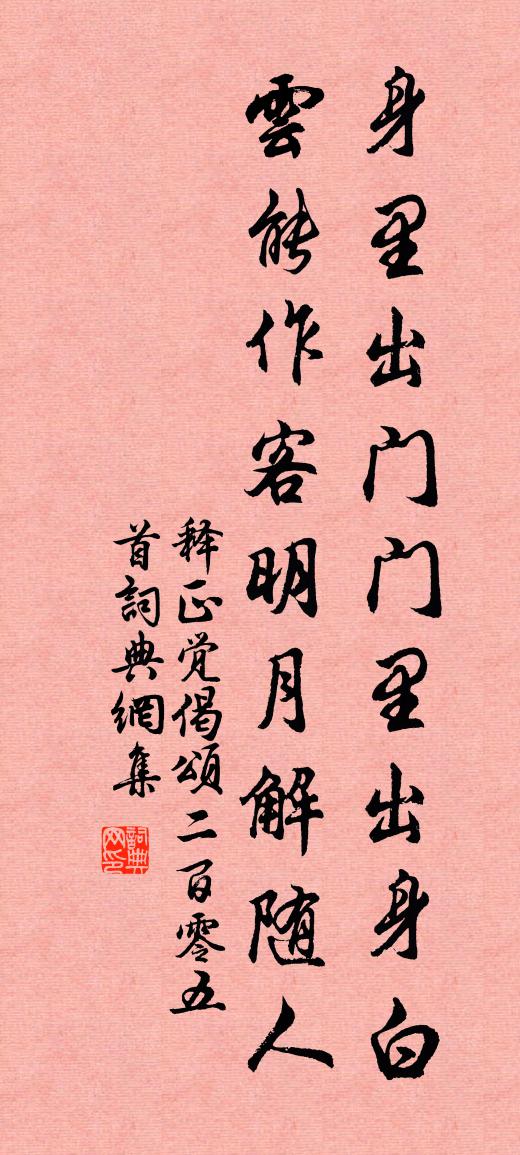 身里出门门里出身白
雲能作客明月解随人
释正觉偈頌二百零五
首詞典網集
詞典网印